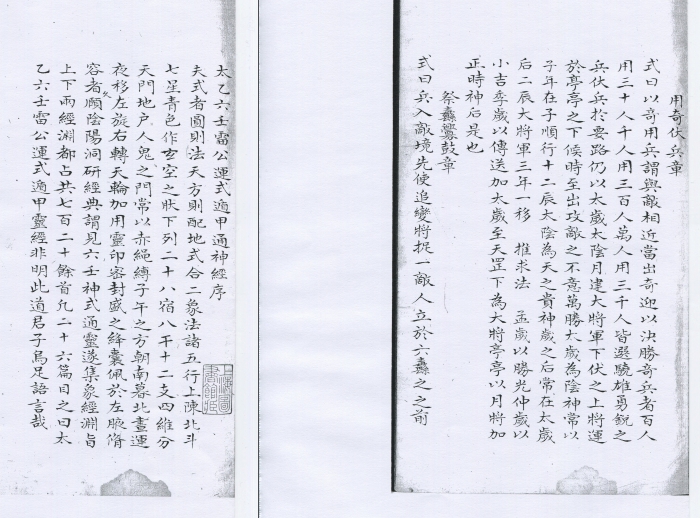 用奇伏兵章
式曰以奇用兵謂與敵相近當出奇迎以決勝奇兵者百人
用三十人千人用三百人萬人用三千人皆選驍雄勇銳之
兵伏兵於要路仍以太歲太陰月建大將軍下伏之上將運
於亭亭之下候時至出攻敵之不意萬勝太歲為陰神常以
子年在子順行十二辰太陰為天之貴神歲之后常在太歲
后二辰大將軍三年一移 推求法 孟歲以勝光仲歲以
小吉季歲以傳送加太歲至天罡下為大將亭亭以月將加
正時神后是也
祭纛釁鼓章
式曰兵入敵境先使追變將捉一敵人立於六纛之之前
太乙六壬雷公運式遁甲通神經序
夫式者圓則法天方則配地式合二象法諸五行上陳北斗
七星青色作玄空之狀下列二十八宿八干十二支四維分
天門地戶人鬼之門常以赤繩縛子午之方朝南暮北晝運
夜移左旋右轉天輪加用靈印密封盛之絳囊佩於左腋脩
容者久願陰陽洞研經典謂見六壬神式通靈遂集象經淵旨
上下兩經淵都占共七百二十餘首凢二十六篇目之曰太
乙六壬雷公運式遁甲靈經非明此道君子焉足語言哉
上海圖
書館藏